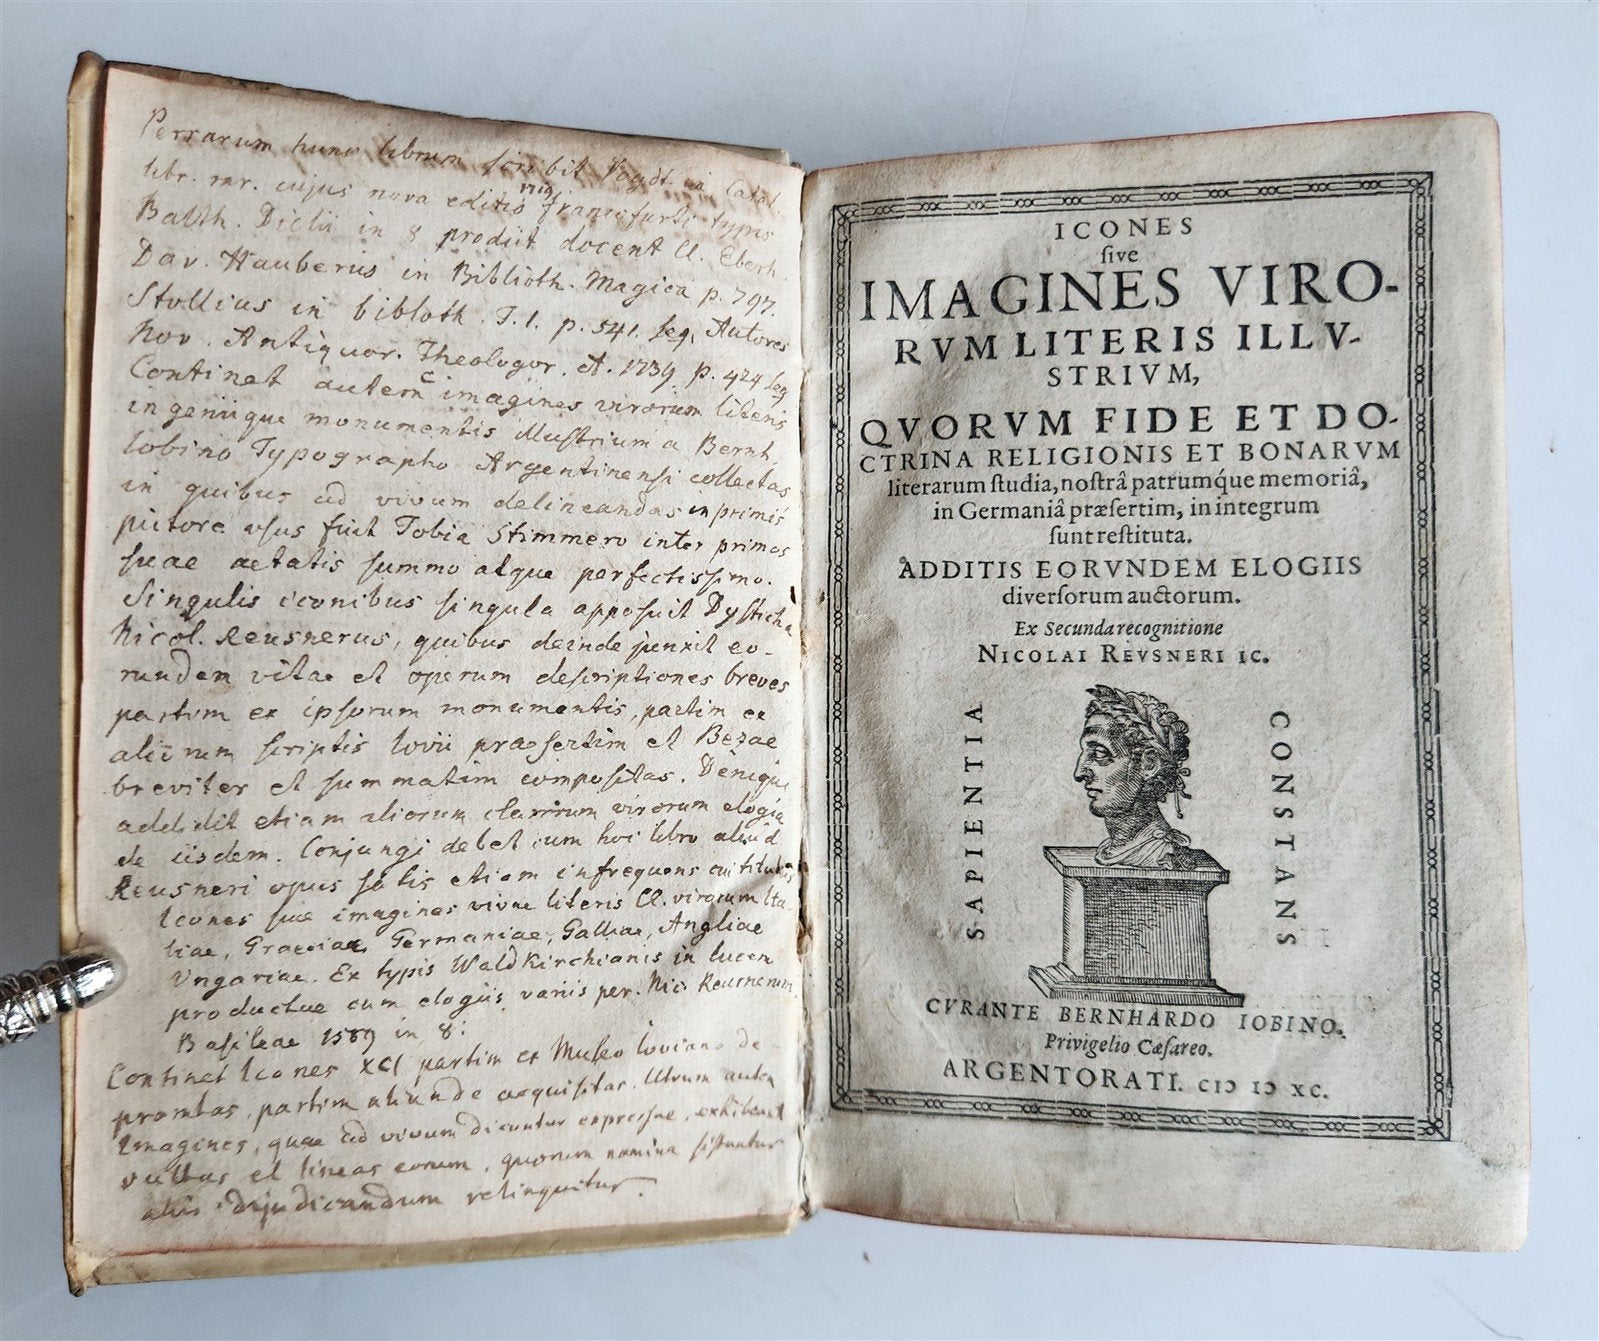 Perrarum hunc librum scribit Vogdt in Catal.
libr. rar. cujus nova editio 1719 francofurti typis
Balth. Diehlii in 8 prodiit docent Cl. Eberh
Dav. Hauberus in Biblioth. Magica p. 797.
Stollius in biblioth. T. 1. p. 541. seq. Autores
Nov. Antiquor. Theologor. A. 1739 p. 424 seq
Continet autem imagines virorum literis
ingeniique monumentis illustrium a Bernh.
Iobino Typographo Argentinensi collectas
in quibus ad vivum delineandas inprimis
pictore usus fuit Tobia Stimmero inter primos
suae aetatis summo atque perfectissimo.
Singulis iconibus singula apposuit Dysticha
Nicol. Reusnerus, quibus deinde junxit eo-
rundem vitae et operum descriptiones breves
partim ex ipsorum monumentis, partim ex
aliorum scriptis Iovii praesertim et Bezae
breviter et summatim compositas. Denique
addidit etiam aliorum clarorum virorum elogia
de iisdem. Conjungi debet cum hoc libro aliud
Reusneri opus satis etiam infrequens cui titulus
Icones sive imagines vivae literis Cl. virorum Ita-
liae, Graeciae, Germaniae, Galliae, Angliae
Ungariae. Ex typis Waldkirchianis in lucem
productae cum elogiis variis per. Nic. Reusnerum.
Basileae 1589 in 8.
Continet Icones XCI partim ex Museo Ioviano de-
promtas, partim aliunde acquisitas. Utrum autem
Imagines, quae ad vivum dicuntur expressae, exhibeant
vultus et lineas eorum, quorum nomina sistuntur
aliis dijudicandum relinquitur.
ICONES
sive
IMAGINES VIRO-
RVM LITERIS ILLV-
STRIVM,
QVORVM FIDE ET DO-
CTRINA RELIGIONIS ET BONARVM
literarum studia, nostrâ patrumq́ue memoriâ,
in Germaniâ præsertim, in integrum
sunt restituta.
ADDITIS EORVNDEM ELOGIIS
diversorum auctorum.
Ex Secunda recognitione
NICOLAI REVSNERI IC.
SAPIENTIA
CONSTANS
CVRANTE BERNHARDO IOBINO.
Privigelio Cæsareo.
ARGENTORATI. CIↃ IↃ XC.